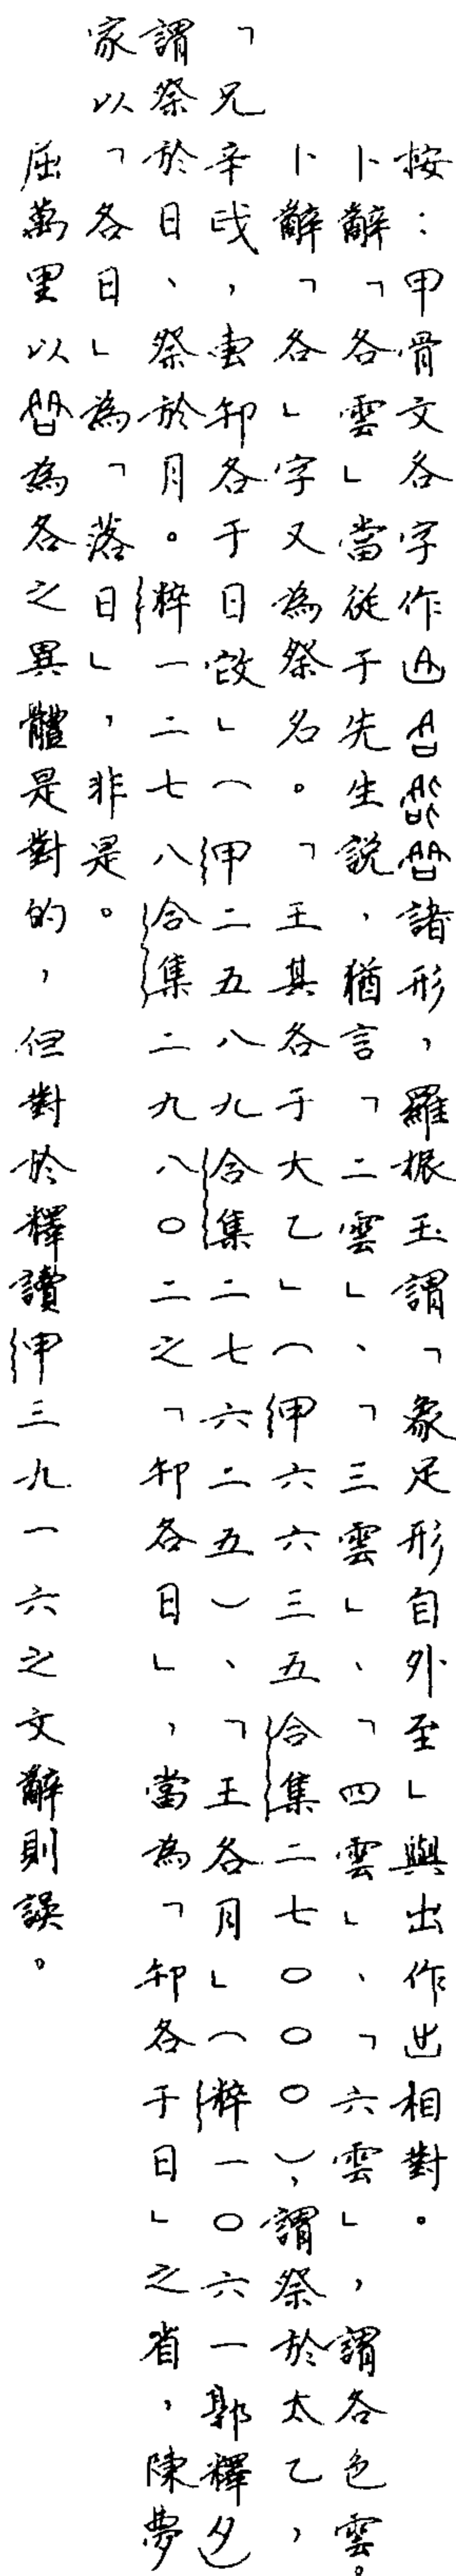 按：甲骨文各字作諸形，羅振玉謂「象足形自外至」與出作相對。
卜辭「各雲」當從于先生說，猶言「二雲」、「三雲」、「四雲」、「六雲」，謂各色雲。
卜辭「各」字又為祭名。「王其各于大乙」（甲六六三五合集二七〇〇〇），謂祭於太乙，
「兄辛戌，叀卯各于日改」（甲二五八九合集二七六二五）、「王各月」（粹一〇六一郭釋夕）
謂祭於日、祭於月。粹一二七八合集二九八〇二之「卯各日」，當為「卯各于日」之省，陳夢
家以「各日」為「落日」，非是。
屈萬里以為各之異體是對的，但對於釋讀甲三九一六之文辭則誤。